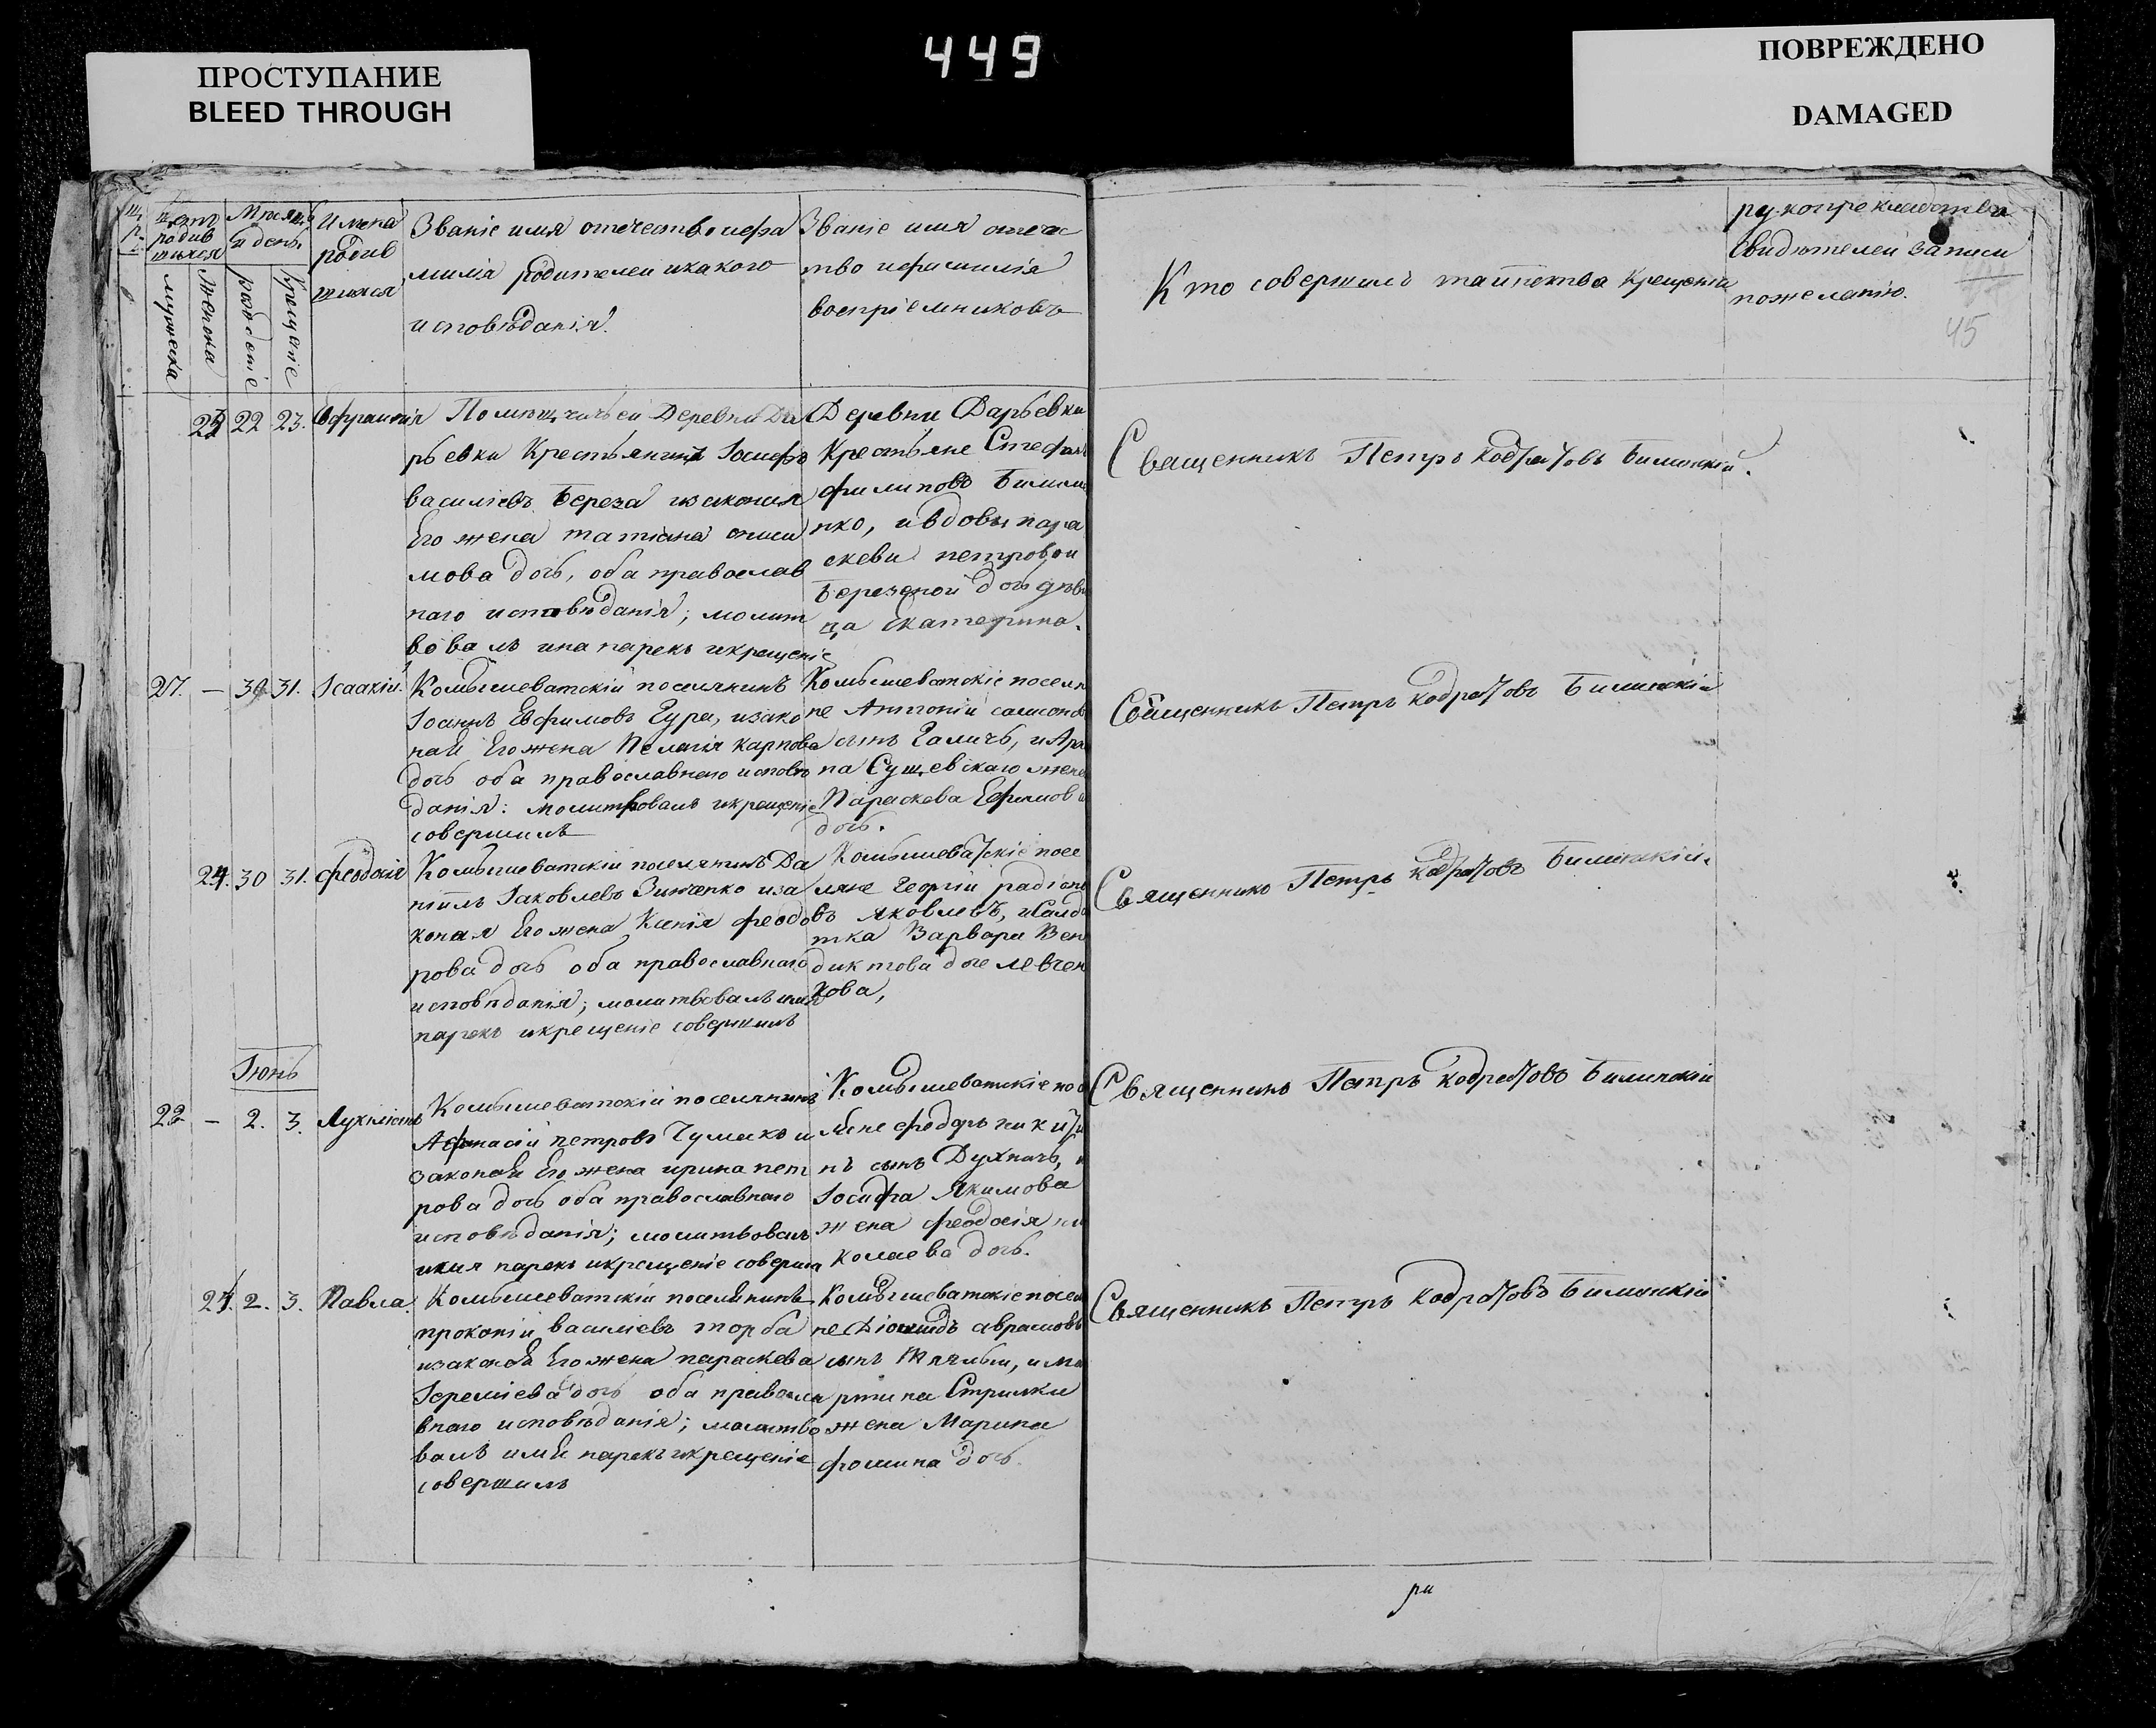 449
ПРОСТУПАНИЕ
BLEED THROUGH
ПОВРЕЖДЕНО
DAMAGED
родив
шихся
мужеска
женска
и день
рождение
крещение
Имена
родив
шихся
Званіе имя отечество и фа
милія родителей и какого
исповѣданія.
Званіе имя отече
тво и фамилія
воспріемниковъ
Кто совершилъ таинства крещенія
рукоприкладства
свидѣтелей записи
по желанію.
45
22 23.
Помѣщичьей Деревни Да
рьевки Крестьянинъ Іосифъ
василіевъ Береза и законная
Его жена татіана
мова дочь, оба православ
наго исповѣданія; молит
вовалъ и на парекъ и крещеніе
Деревни Дарьевки
Крестьяне Стефанъ
филиповъ
нко, и вдовы пара
скеви петровой
Березной дочь дѣви
ца Екатерина.
Священникъ Петръ Кодратовъ Билинскій.
27. — 30 31. Ісаакій.
Комышеватскій поселянинъ
Іоаннъ Евфимовъ Гура, и зако
ная Его жена Пелагія карпова
дочь оба православнаго исповѣ
данія: молитвовалъ и крещеніе
совершилъ
Комышеватскіе поселя
не Антоній самсоновъ
сынъ Галичь, и
па Сущевскаго жена
Параскева Ефимова
дочь.
Священникъ Петръ Кодратовъ Билинскій
24. 30 31. феодосія
Комышеватскій поселянинъ Да
ніилъ Іаковлевъ Зинченко и за
коная Его жена Ксенія феодо
рова дочь оба православнаго
исповѣданія; молитвовалъ имя
парекъ и крещеніе совершилъ
Комышеватскіе посе
ляне Георгій радіоно
въ Яковлевъ, и салда
тка Варвара Вене
диктова дочь левчен
кова,
Священникъ Петръ Кодратовъ Билинскій.
Іюнь
22 — 2. 3.
Комышеватскій поселянинъ
Афанасій петровъ Чумакъ и
законая Его жена ирина пет
рова дочь оба православнаго
исповѣданія; молитвовалъ
имя парекъ и крещеніе соверши
Комышеватскіе посе
ляне феодоръ никити
нъ сынъ Духничь, и
Іосифа Якимова
жена феодосія ни
колаева дочь.
Священникъ Петръ Кодратовъ Билинскій
2. 3. Павла.
Комышеватскій поселянинъ
прокопій василіевъ торба
и законая Его жена параскева
Іереміева дочь оба правосла
внаго исповѣданія; молитво
валъ имя парекъ и крещеніе
совершилъ
Комышеватскіе поселя
не Діомидъ аврамовъ
сынъ и ма
ртина Стрилки
жена Марина
фомина дочь.
Священникъ Петръ Кодратовъ Билинскій
ри